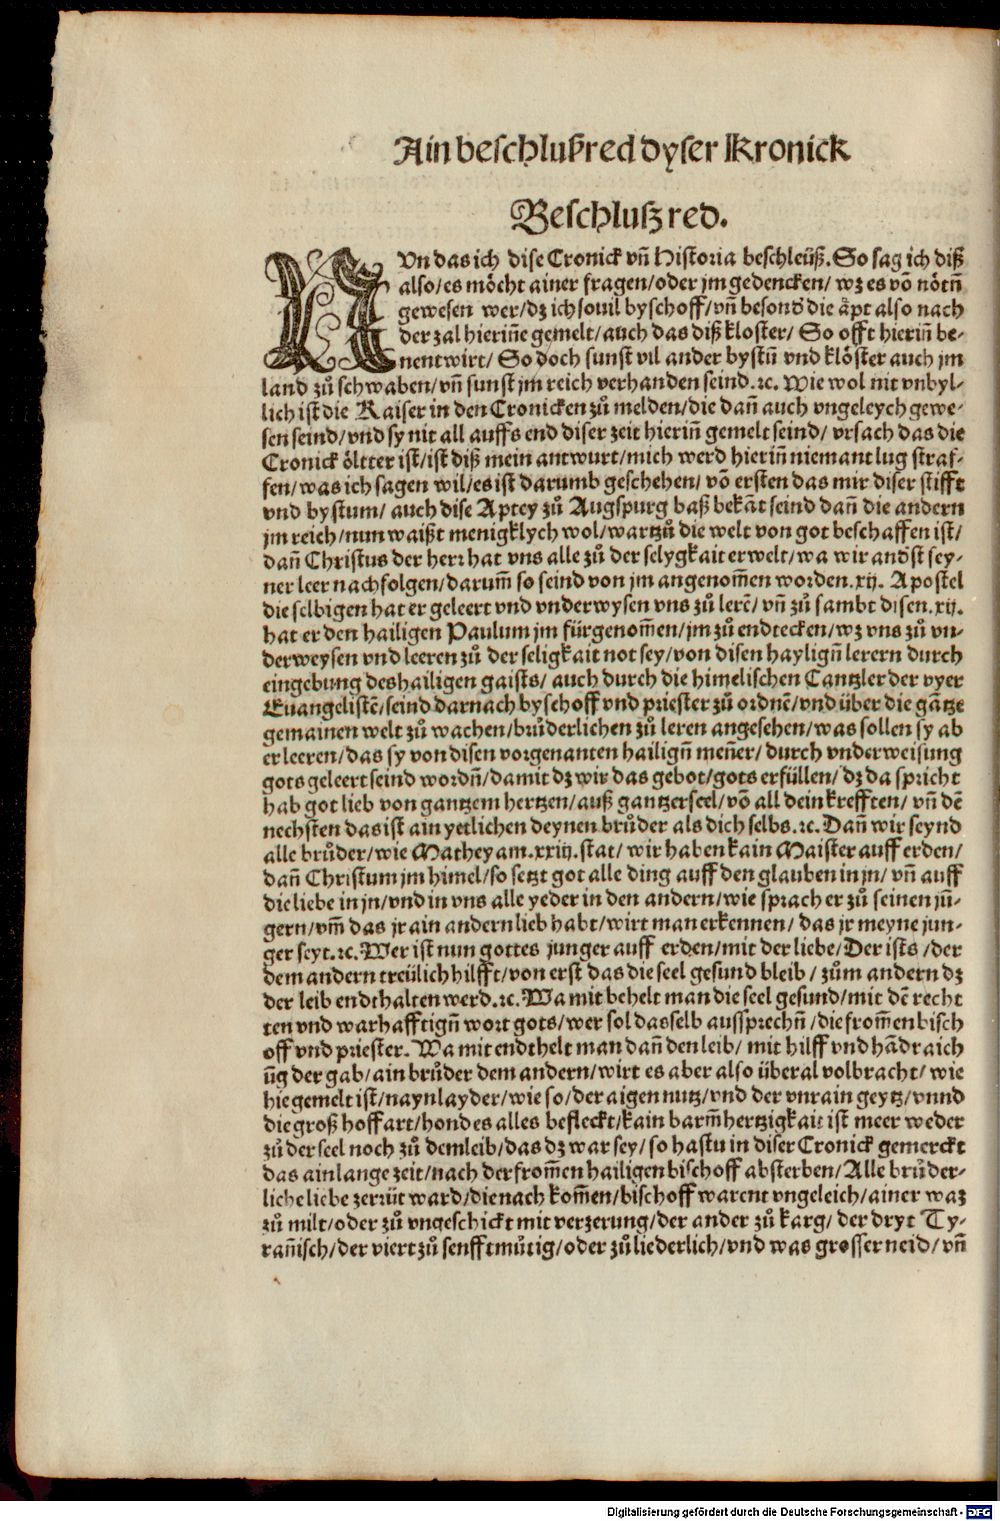 Ain beschlußred dyser Kronick
Beschluß red.
NUn das ich dise Cronick vñ Historia beschleüß. So sag ich diß
also/es möcht ainer fragen/oder jm gedencken/ wz es võ nötñ
gewesen wer/dz ich souil byschoff/vñ besond̕ die äpt also nach
der zal hieriñe gemelt/auch das diß kloster/ So offt hieriñ be-
nent wirt/ So doch sunst vil ander bystũ vnd klöster auch jm
land zů schwaben/vñ sunst jm reich verhanden seind.ꝛc. Wie wol nit vnbyl-
lich ist die Kaiser in den Cronicken zů melden/die dañ auch vngeleych gewe-
sen seind/vnd sy nit all auffs end diser zeit hieriñ gemelt seind/ vrsach das die
Cronick öltter ist/ist diß mein antwurt/mich werd hieriñ niemant lug straf-
fen/was ich sagen wil/es ist darumb geschehen/ võ ersten das mir diser stifft
vnd bystum/ auch dise Aptey zů Augspurg baß bekãt seind dañ die andern
jm reich/nun waißt menigklych wol/wartzů die welt von got beschaffen ist/
dañ Christus der herr hat vns alle zů der selygkait erwelt/wa wir and̕st sey-
ner leer nachfolgen/darum̃ so seind von jm angenom̃en worden.xij. Apostel
die selbigen hat er geleert vnd vnderwysen vns zů lerẽ/ vñ zů sambt disen.xij.
hat er den hailigen Paulum jm fürgenom̃en/jm zů endtecken/wz vns zů vn-
derweysen vnd leeren zů der seligkait not sey/von disen hayligñ lerern durch
eingebung des hailigen gaists/ auch durch die himelischen Cantzler der vyer
Euangelistẽ/seind darnach byschoff vnd priester zů ordnẽ/vnd über die gãtze
gemainen welt zů wachen/brůderlichen zů leren angesehen/was sollen sy ab
er leeren/das sy von disen vorgenanten hailigñ meñer/ durch vnderweisung
gots geleert seind wordñ/damit dz wir das gebot/gots erfüllen/ dz da spricht
hab got lieb von gantzem hertzen/auß gantzer seel/võ all dein krefften/ vñ dẽ
nechsten das ist ain yetlichen deynen brůder als dich selbs.ꝛc. Dañ wir seynd
alle brůder/wie Mathey am.xxiij.stat/ wir haben kain Maister auff erden/
dañ Christum jm himel/so setzt got alle ding auff den glauben in jn/ vñ auff
die liebe in jn/vnd in vns alle yeder in den andern/wie sprach er zů seinen jũ-
gern/vm̃ das jr ain andern lieb habt/wirt man erkennen/ das jr meyne jun-
ger seyt.ꝛc. Wer ist nun gottes junger auff erden/mit der liebe/Der ists /der
dem andern treülich hilfft/von erst das die seel gesund bleib/ zům andern dz
der leib endthalten werd.ꝛc. Wa mit behelt man die seel gesund/mit dẽ recht
ten vnd warhafftigñ wort gots/wer sol dasselb aussprechñ /die from̃en bisch
off vnd priester. Wa mit endthelt man dañ den leib/ mit hilff vnd hãdraich
ũg der gab/ain brůder dem andern/wirt es aber also überal volbracht/ wie
hie gemelt ist/nayn layder/wie so/der aigen nutz/vnd der vnrain geytz/vnnd
die groß hoffart/hond es alles befleckt/kain barm̃hertzigkait ist meer weder
zů der seel noch zů dem leib/das dz war sey/ so hastu in diser Cronick gemerckt
das ain lange zeit/nach der from̃en hailigen bischoff absterben/Alle brůder-
liche liebe zerrüt ward/die nach kom̃en/bischoff warent vngeleich/ainer waz
zů milt/oder zů vngeschickt mit verzerung/der ander zů karg/ der dryt Ty-
rañisch/der viert zů senfftmütig/oder zů liederlich/vnd was grosser neid/ vñ
Digitalisierung gefördert durch die Deutsche Forschungsgemeinschaft - DFG